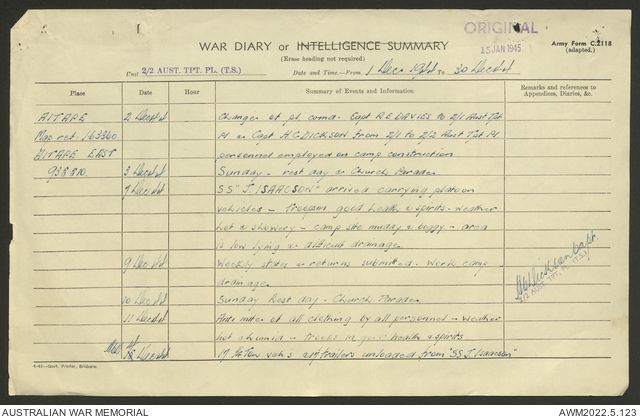 ORIGINAL
15 JAN 1945
WAR DIARY or INTELLIGENCE SUMMARY
Army Form C.2118
(adapted.)
(Erase heading not required)
Unit 2/2 AUST. TPT. PL. (T.S.) Date and Time—From 1 Dec To 30 Dec 44
Place Date Hour Summary of Events and Information Remarks and references to Appendices, Diaries, &c.
AITAPE 2 Dec 44 Change of pl. comd. Capt R.E. DAVIES to 2/1 Aust Tpt
Map ref. 163360 Pl & Capt H.C. DICKSON from 2/1 to 2/2 Aust Tpt Pl
AITAPE EAST personnel employed on camp construction
935810. 3 Dec 44 Sunday - rest day & Church Parade
7 Dec 44 SS "J. ISAACSON" arrived carrying platoon
vehicles - Troops in good health & spirits - weather
hot & showery - camp site muddy & boggy - area
is low lying & difficult drainage
9 Dec 44 Weekly states & returns submitted. Work camp
drainage
10 Dec 44 Sunday Rest day - Church Parade
11 Dec 44 Anti mite of all clothing by all personnel - weather
hot & humid - Troops in good health & spirits
Dec 44 17 vehs trailers unloaded from "SS J. Isaacson"
Capt.
2/2 AUST. TPT. PL. (T.S.)
4-43—Govt. Printer, Brisbane.
AUSTRALIAN WAR MEMORIAL AWM2022.5.123